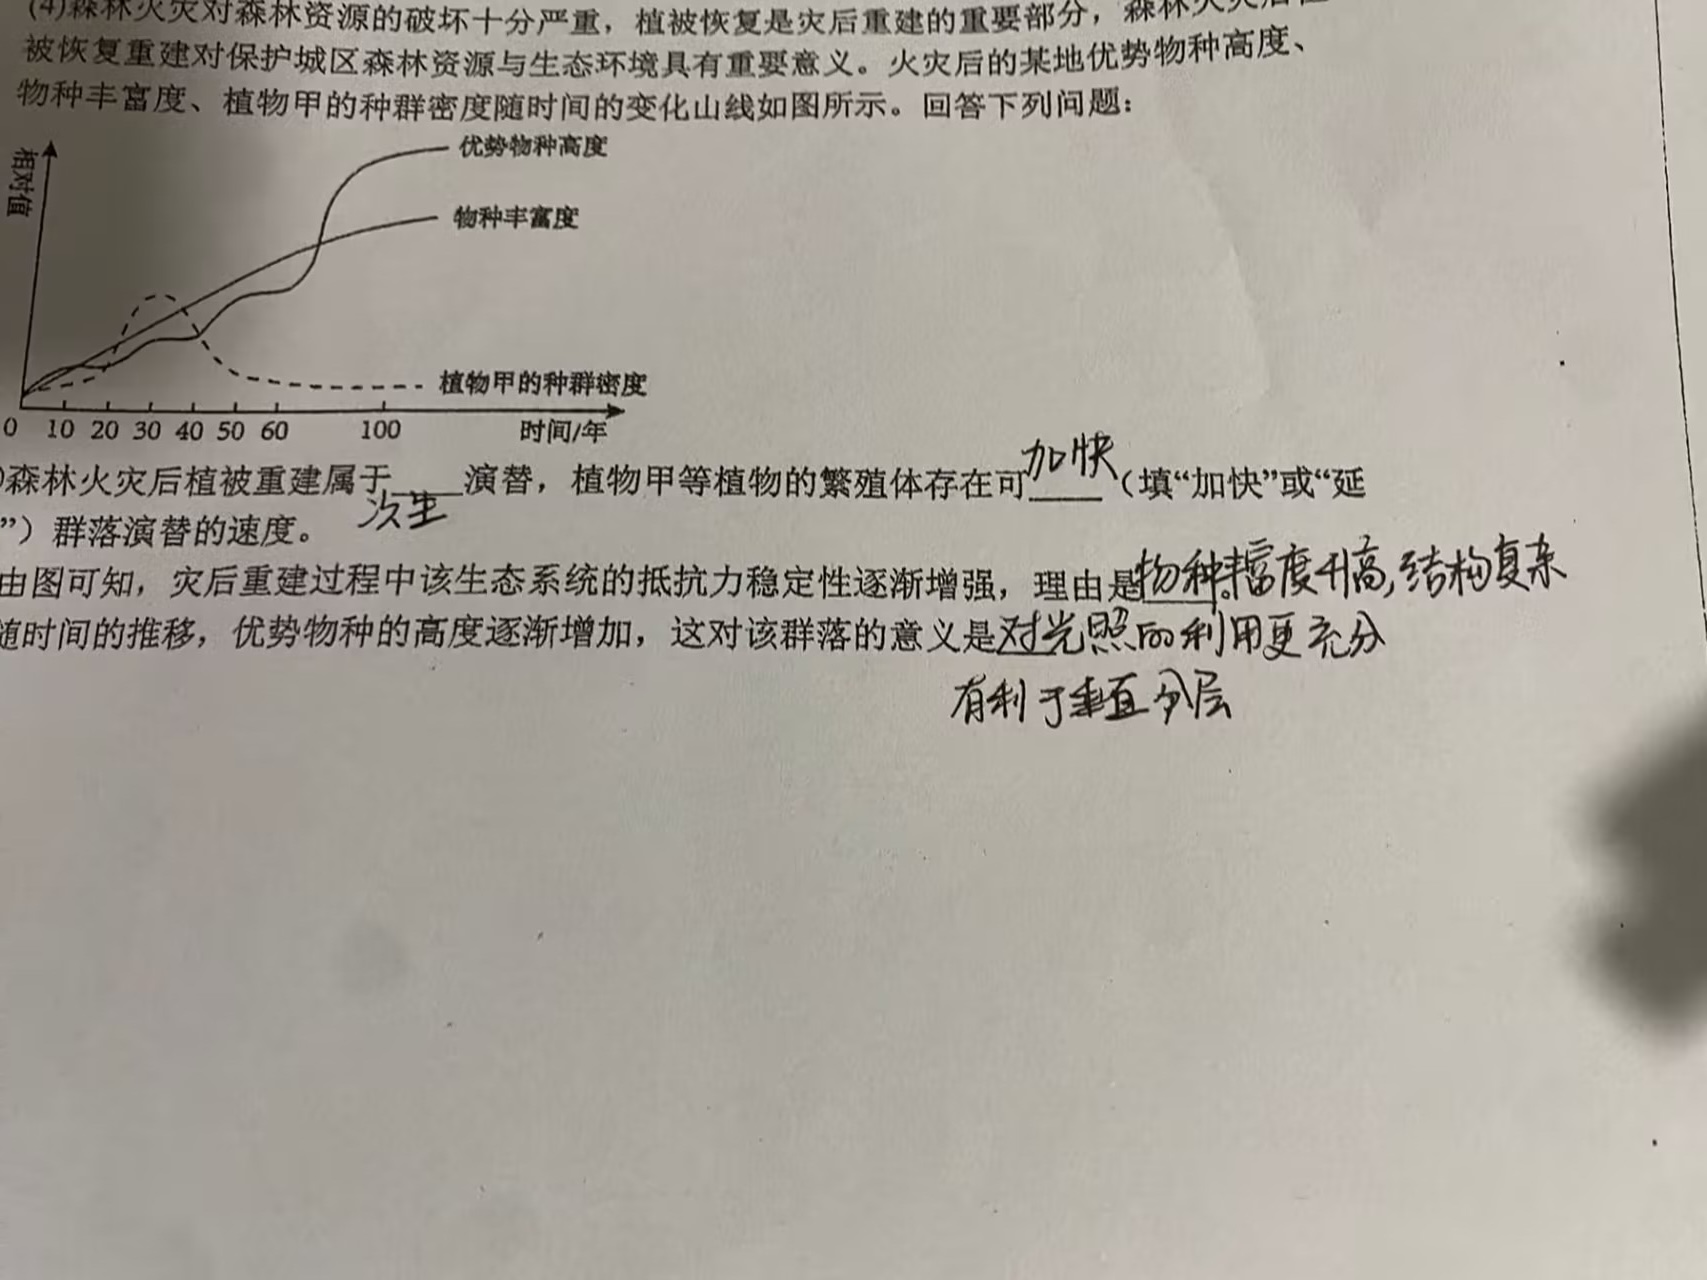 (4)森林火灾对森林资源的破坏十分严重，植被恢复是灾后重建的重要部分，森林火灾后
被恢复重建对保护城区森林资源与生态环境具有重要意义。火灾后的某地优势物种高度、
物种丰富度、植物甲的种群密度随时间的变化山线如图所示。回答下列问题：
相对值
优势物种高度
物种丰富度
植物甲的种群密度
0 10 20 30 40 50 60 100 时间/年
)森林火灾后植被重建属于次生演替，植物甲等植物的繁殖体存在可加快（填“加快”或“延
”）群落演替的速度。
由图可知，灾后重建过程中该生态系统的抵抗力稳定性逐渐增强，理由是物种丰富度升高，结构复杂。
随时间的推移，优势物种的高度逐渐增加，这对该群落的意义是对光照的利用更充分
有利于垂直分层